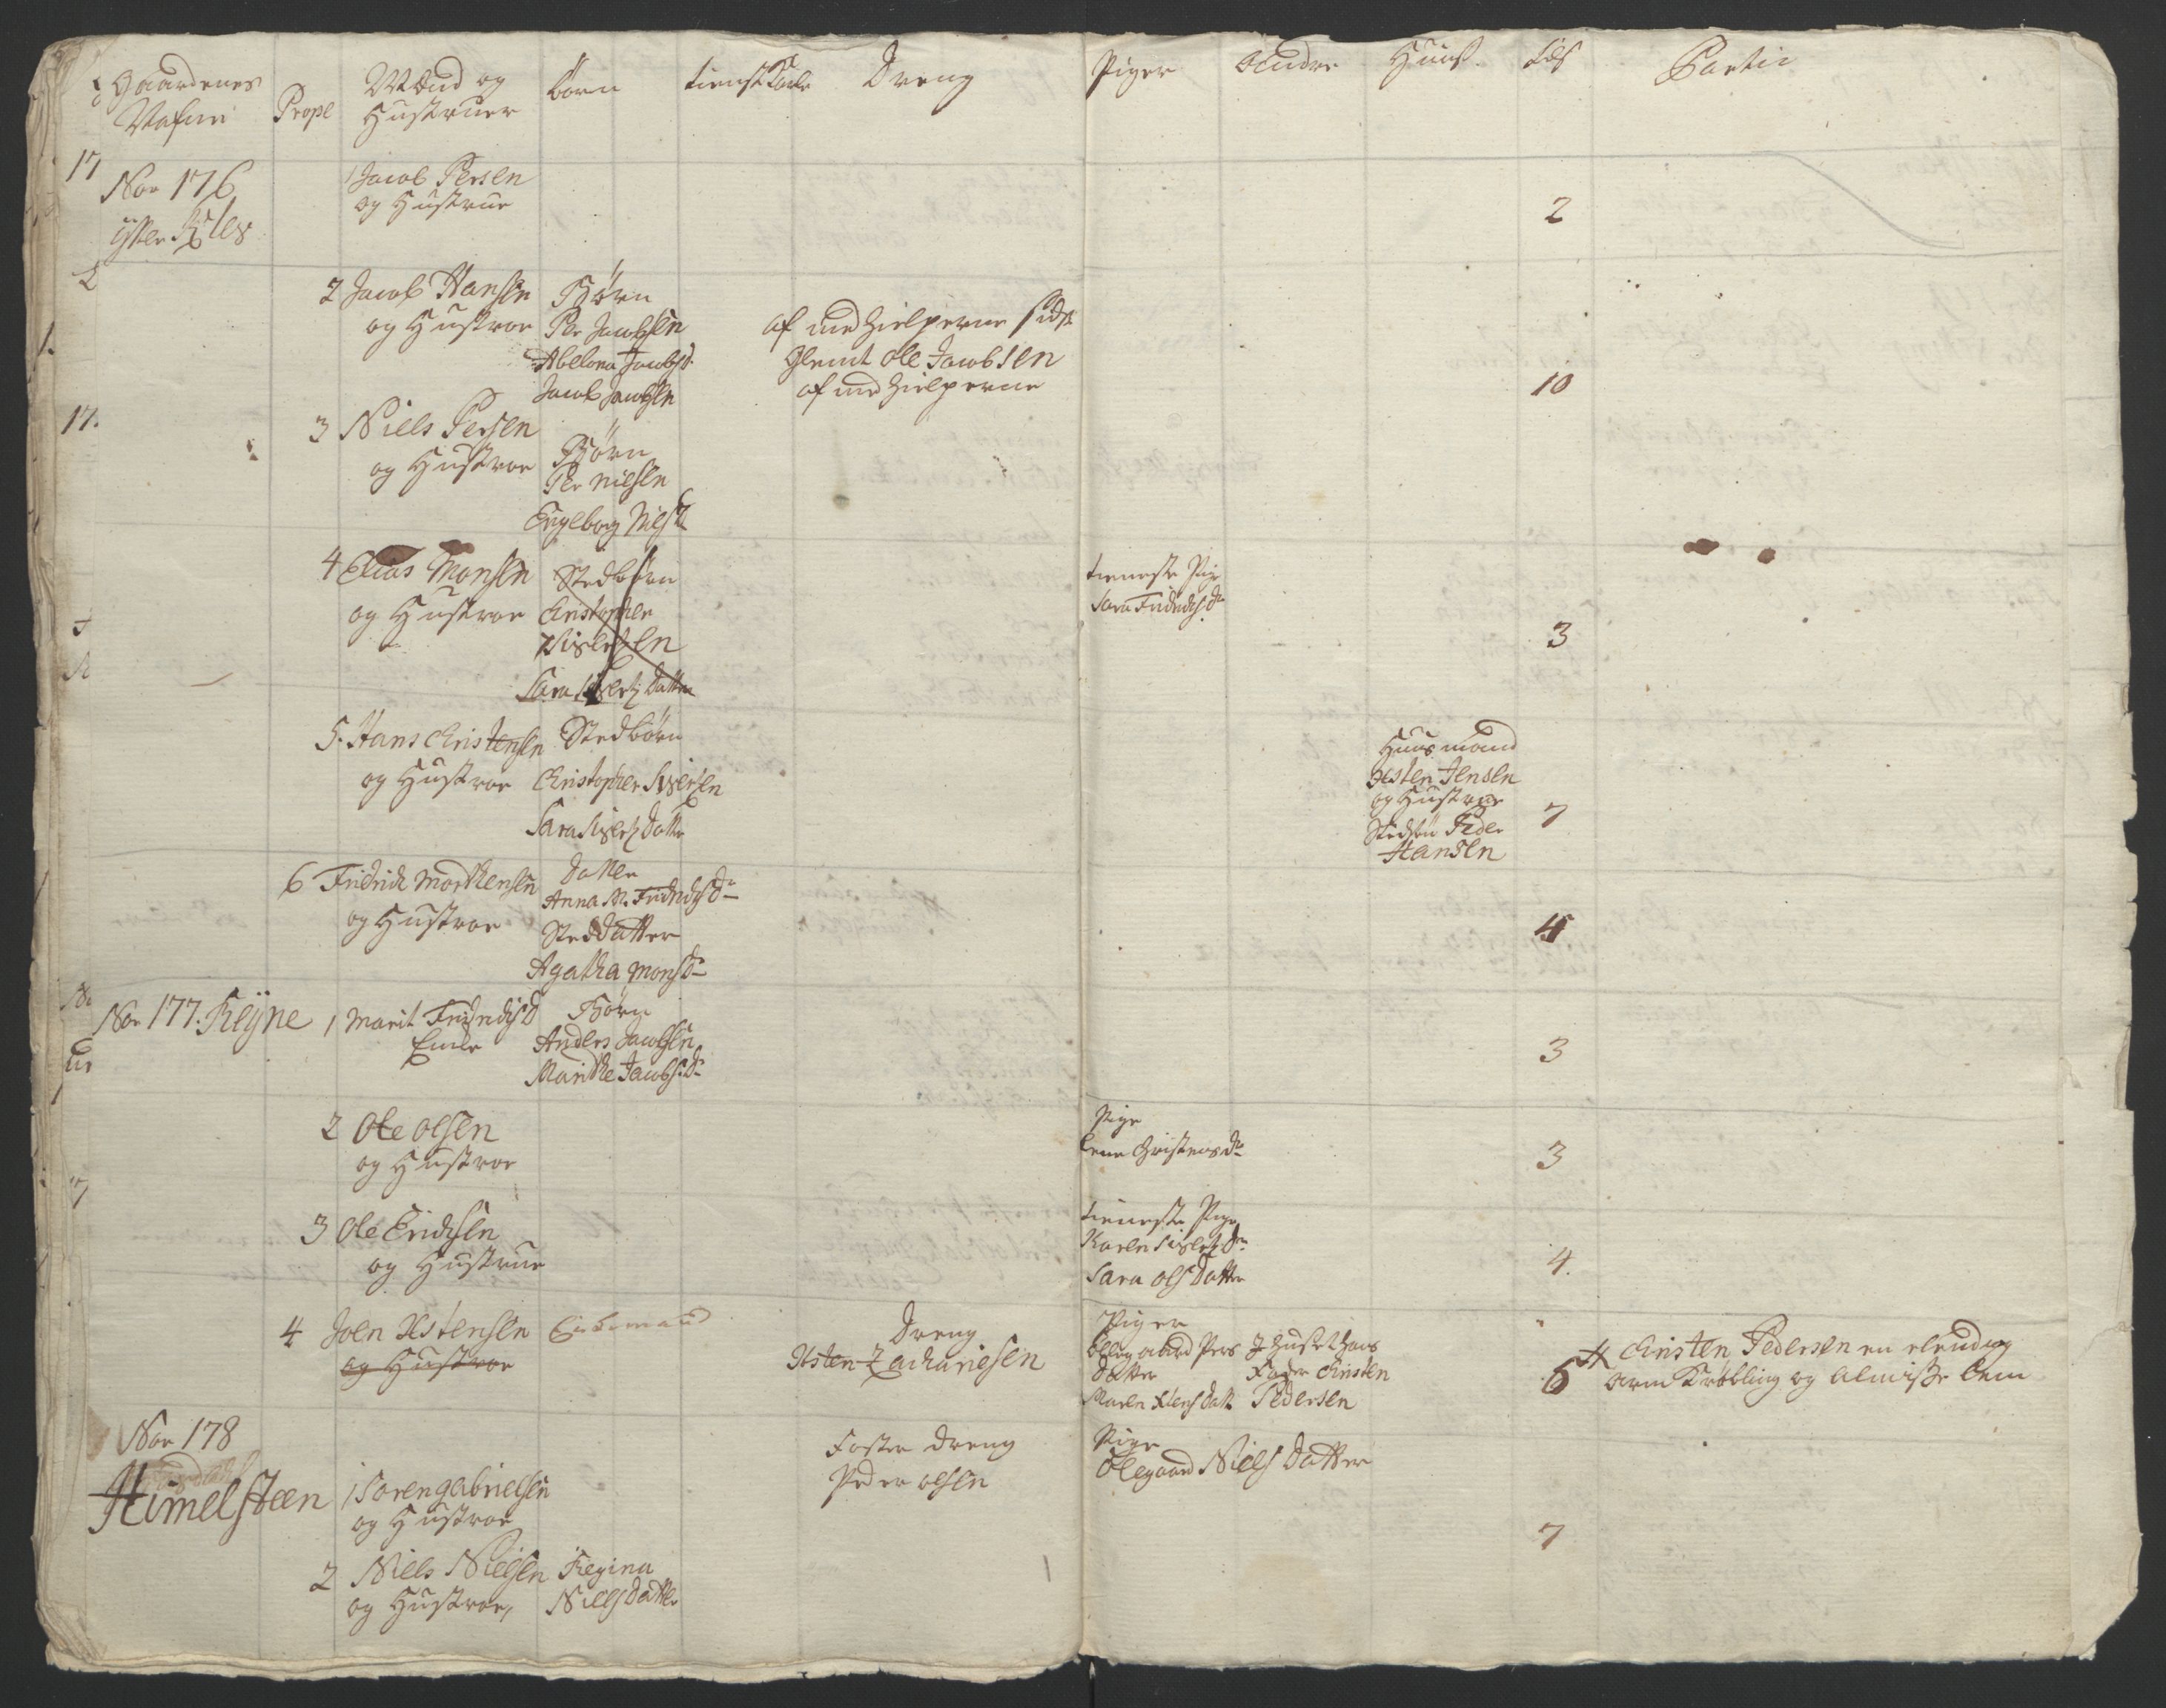 Gaardenes
Nafne
Prope
Mænd og
Hustruer
børn
tienst Karle
Dreng
Piger
Andre
Huusf.
Tils
Partic
17
Nor 176
ÿtter
1 Jacob Persen
og Hustrue
2
2 Jacob Hansen
og Hustroe
Børn
Per Jacobsen
Abelona Jacobsd.
Jacob Jacobsen
af medhielperne sidst
glemt Ole Jacobsen
af medhielperne
10
17.
3 Niels Persen
og Hustroe
Børn
Per Nielsen
Engeborg Nielsd.
4 Elias Monsen
og Hustroe
Stedbørn
Christopher
Siversen
Sara Siverz Datter
tieneste Pige
Sara Fridrichs. dr
3
5. Hans Christensen
og Hustroe
Stedbørn
Christopher Siversen
Sara Siverz Datter
Huusmand
Xsten Jensen
og Hustroe
Stedsøn Peder
Hansen
7
6 Fridrich Morthensen
og Hustroe
Datter
Anna M. Fridrichs Dr
Steddatter
Agatha Mons Dr
4
Nor 177. Reÿne
1 Marit Fridrichs D
Enke
Børn
Anders Jacobsen
Marithe Jacobs. Dr
3
2 Ole Olsen
og Hustroe
Pige
Lene Christens Dr
3
3 Ole Erichsen
og Hustrue
tieneste Pige
Karen Siverz Dr
Sara Ols Datter
4.
4 Joen Xstensen
og Hustroe
Enkemand
Dreng
Xsten Zachariesen
Piger
Ollegaard Pers
Datter
Maren Xstens Datt
I Huset hans
Fader Christen
Pedersen
6
# Christen Pedersen en elendig
arm Krøbling og Almisse Lem
Nor 178
Himelsteen
1 Soren Gabrielsen
og Hustroe
Foster dreng
Peder Olsen
Pige
Olegaard Niels Datter
7
2 Niels Nielsen
og Hustroe,
Regina
Niels Datter